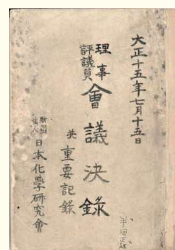 大正十五年七月十五日
理事
評議員
會議決錄
共重要記錄
財團法人日本化學研究會